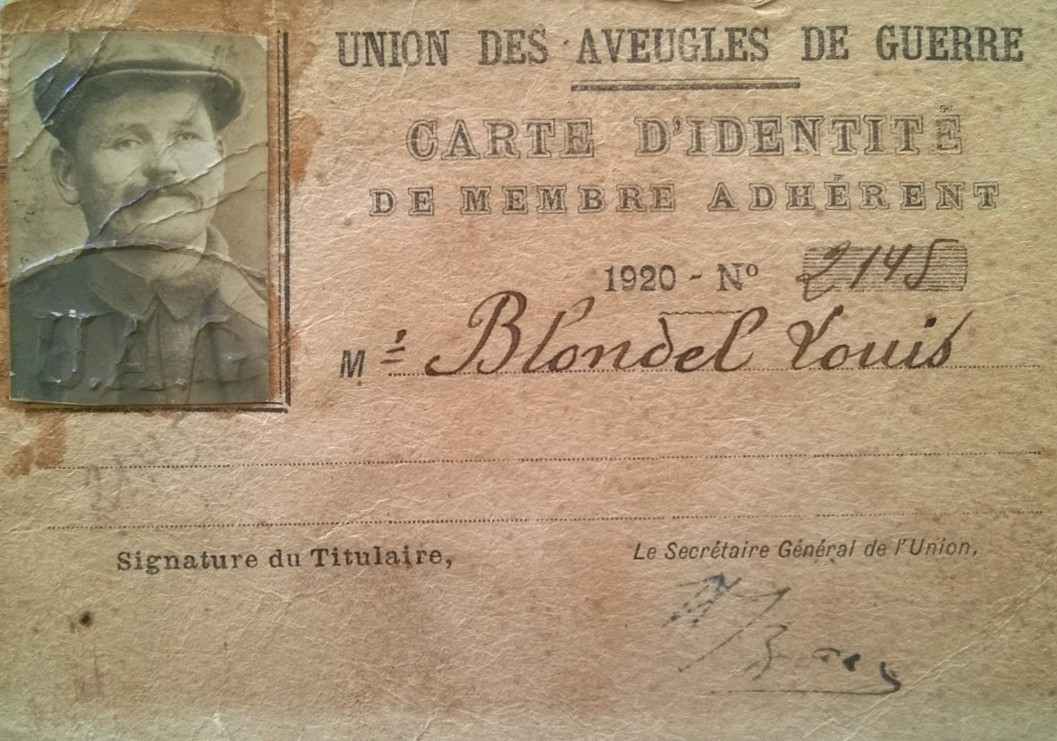 UNION DES AVEUGLES DE GUERRE
CARTE D'IDENTITÉ
DE MEMBRE ADHÉRENT
1920 - Nº 2145
M Blondel Louis
U.A.G
Signature du Titulaire,
Le Secrétaire Général de l'Union,